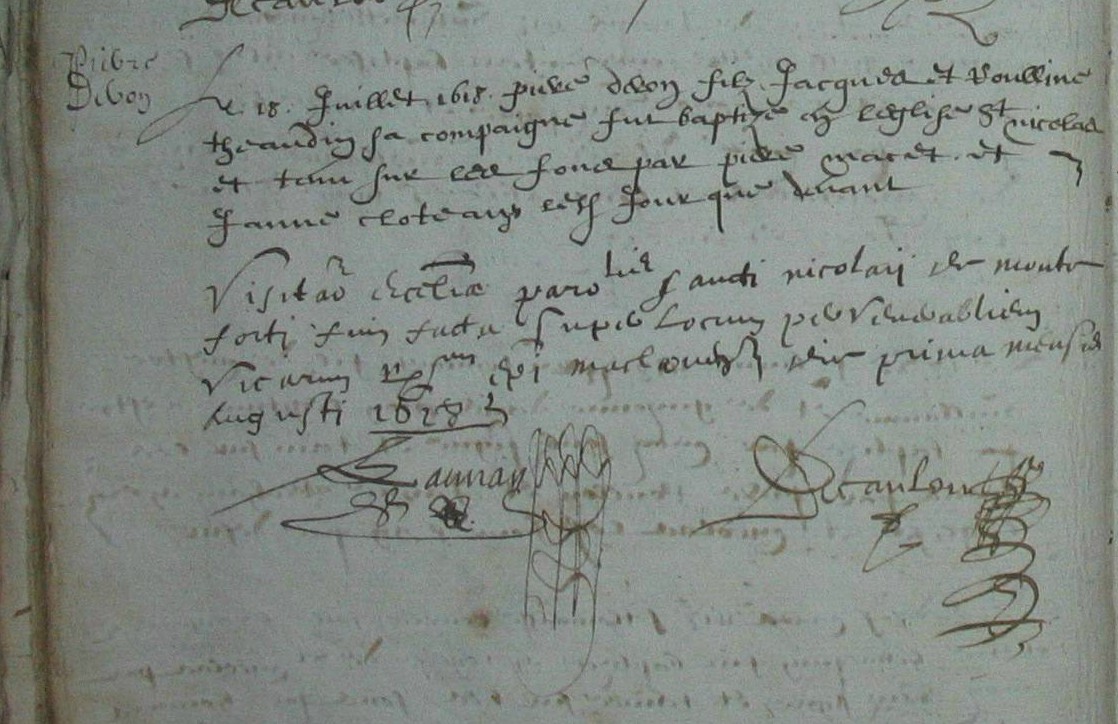 Pierre
Devon
Le 18. Juillet 1618. pierre devon filz Jacques et Roulline
theaudin sa compaigne fut baptizé en leglise St nicolas
et tenu sur les fons par pierre macet. et
Janne cloteau lesd Jour que devant
Visitaõ eccliæ paro lis sancti nicolaij de monte
forti fuit facta super Locum per Venerabilem
Vicarium die prima mensis
Augusti 1618
Launay